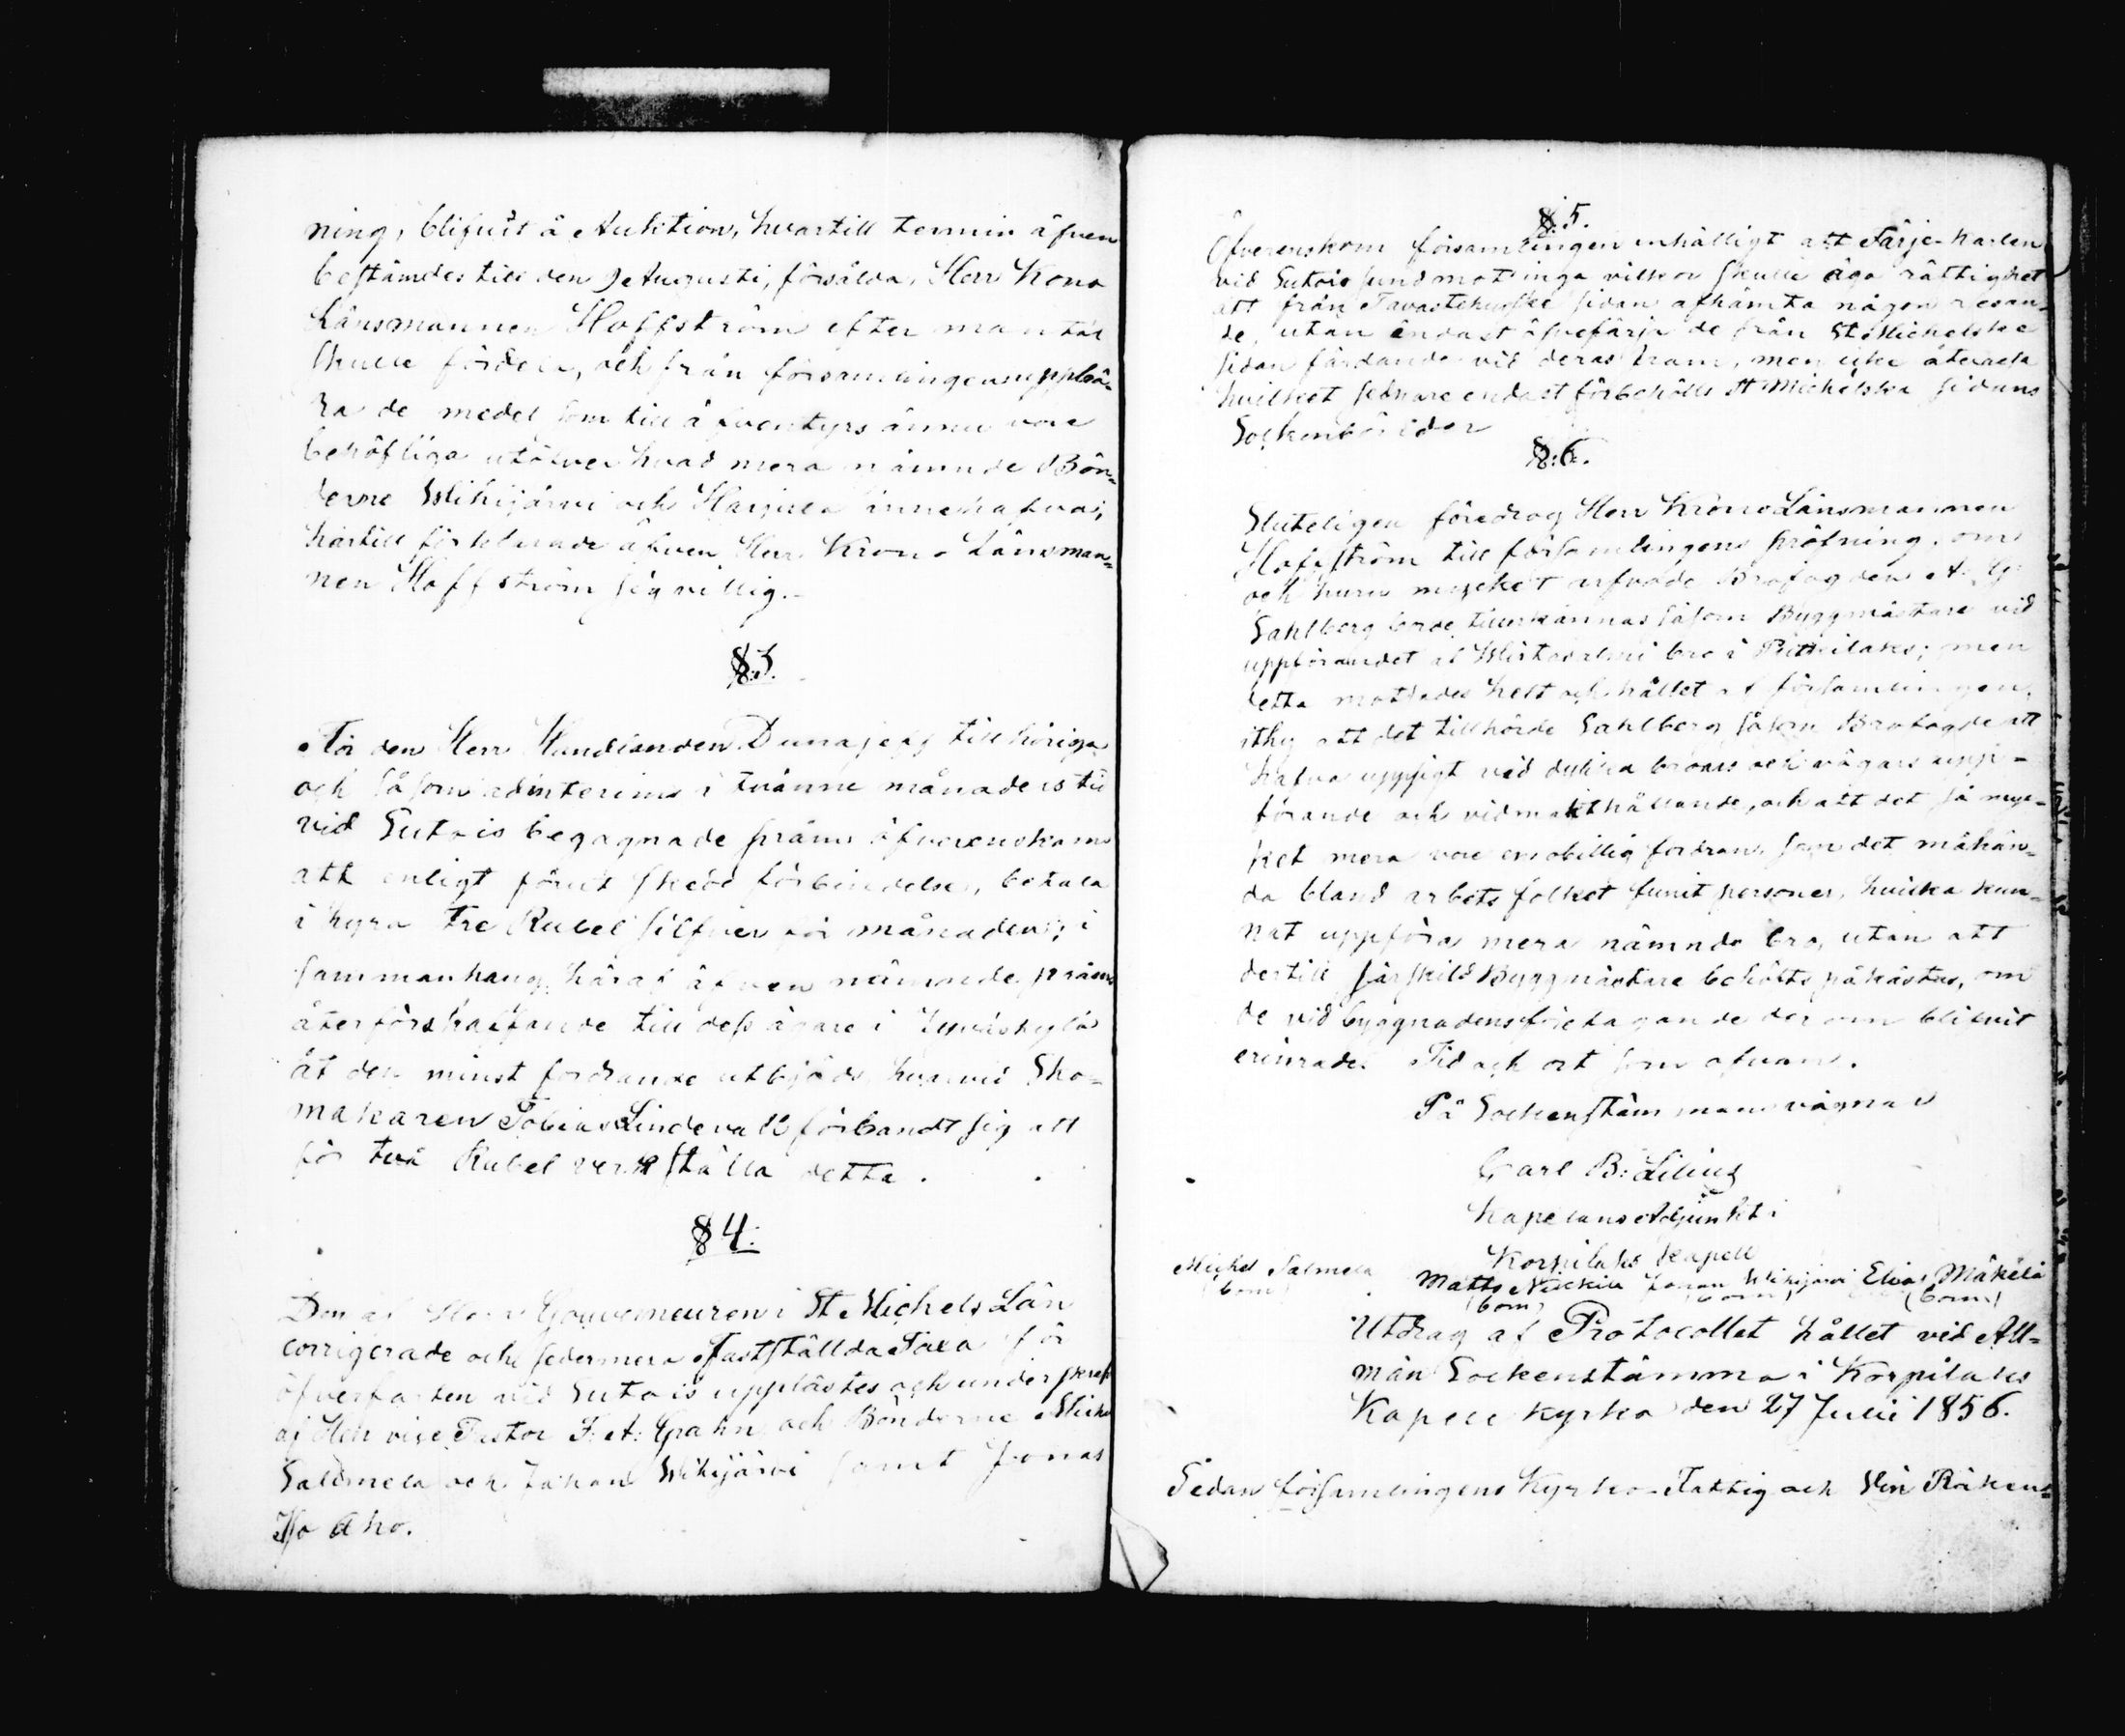 ning, blifvit å Auktion, hvartill termin äfven
bestämdes till den 9 Augusti, försålda, Herr Krono
Länsmannen Hoffström efter mantal
skulle fördela, och från församlingen uppbä-
ra de medel som till äfventyrs ännu vore
behöfliga utöfver hvad mera nämnde Bön-
derne Wihijärvi och Harjula innehafva;
härtill förklarade äfven Herr Krono Länsman-
nen Hoffström sig villig.
§3.
För den Herr Handlanden tillhöriga
och såsom adinterims i tvänne månaders tid
vid Sutois begagnade pråm öfverenskoms
att enligt förut skedd förbindelse, betala
i hyra tre Rubel silfver för månaden; i
sammanhang häraf äfven nämnde pråms
återförskaffande till dess ägare i Jyväskylä
åt den minst fordrande utbjöds, hvarvid Sko-
makaren Tobias Lindevall förbandt sig att
för två Rubel verkställa detta.
§4.
Den af Herr Gouverneuren i St Michels Län
corrigerade och sedermera fastställda Taxa för
öfverfarten vid Sutois upplästes och underskrefs
af Herr vice Pastor F: A: Grahn och Bönderne Michel
Salmela och Johan Wihijärvi samt Jonas
Iso Aho.
§.5.
Öfverenskom församlingen enhälligt att Färje-karlen
vid Sutois sund mot inga vilkor skulle äga rättighet
att från Tavastehusske sidan afhämta någon resan-
de, utan endast öfverfärja de från St Michelske
sidan färdande vid deras fram, men icke återresa
hvilket sednare endast förbehålls St Michelska sidans
Sockenboer
§.6.
Sluteligen föredrog Herr Krono Länsmannen
Hoffström till församlingens pröfning, om
och huru mycket arfvode Brofogden A. G.
Sahlberg borde tillerkännas såsom Byggmästare vid
uppförandet af bro i Putkilaks; men
detta motsades helt och hållet af församlingen,
ithy att det tillhörde Sahlberg såsom Brofogde att
hafva uppsigt vid dylika broars och vägars upp-
förande och vidmakthållande, och att det så myc-
ket mera vore en obillig fordran, som det måhän-
da bland arbetsfolket funnit personer, hvilka kun-
nat uppföra mera nämnda bro, utan att
dertill särskild Byggmästare behöfts påkostas, om
de vid byggnadens företagande derom blifvit
erinrade. Tid och ort som ofvan.
På Sockenstämmans vägnar
Carl B: Lilius
Kapellans Adjunkt i
Korpilaks Kapell
Michel Salmela Matts Niskila Johan Wihijärvi Elias Mäkelä
(bom) (bom) (bom) (bom)
Utdrag af Protocollet hållet vid All-
män Sockenstämma i Korpilaks
Kapell kyrka den 27 Julii 1856.
Sedan församlingens Kyrko- Fattig och Vin Räkens-